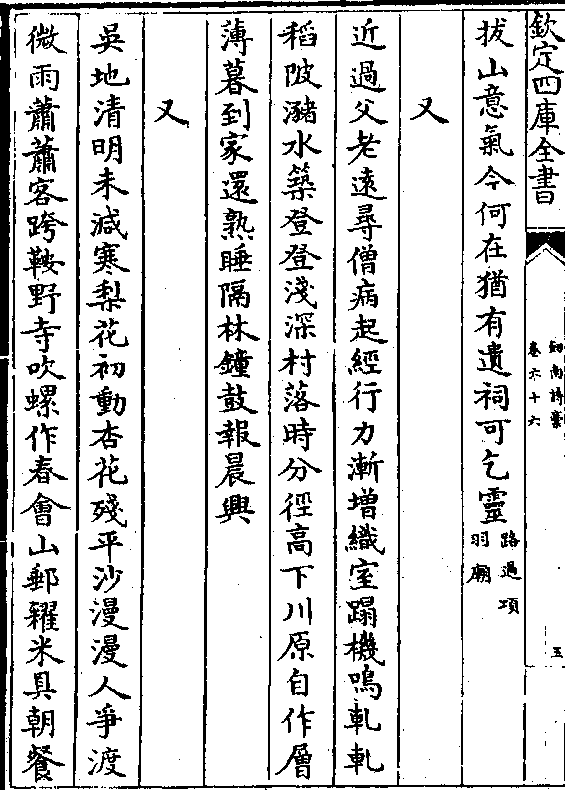 欽定四庫全書
劍南詩藁
卷六十六
五
拔山意氣今何在猶有遺祠可乞靈路過項羽廟
又
近過父老遠尋僧病起經行力漸增織室蹋機鳴軋軋
稻陂瀦水築登登淺深村落時分徑高下川原自作層
薄暮到家還熟睡隔林鐘鼓報晨興
又
吳地清明未減寒梨花初動杏花殘平沙漫漫人爭渡
微雨蕭蕭客跨鞍野寺吹螺作春會山郵糴米具朝餐